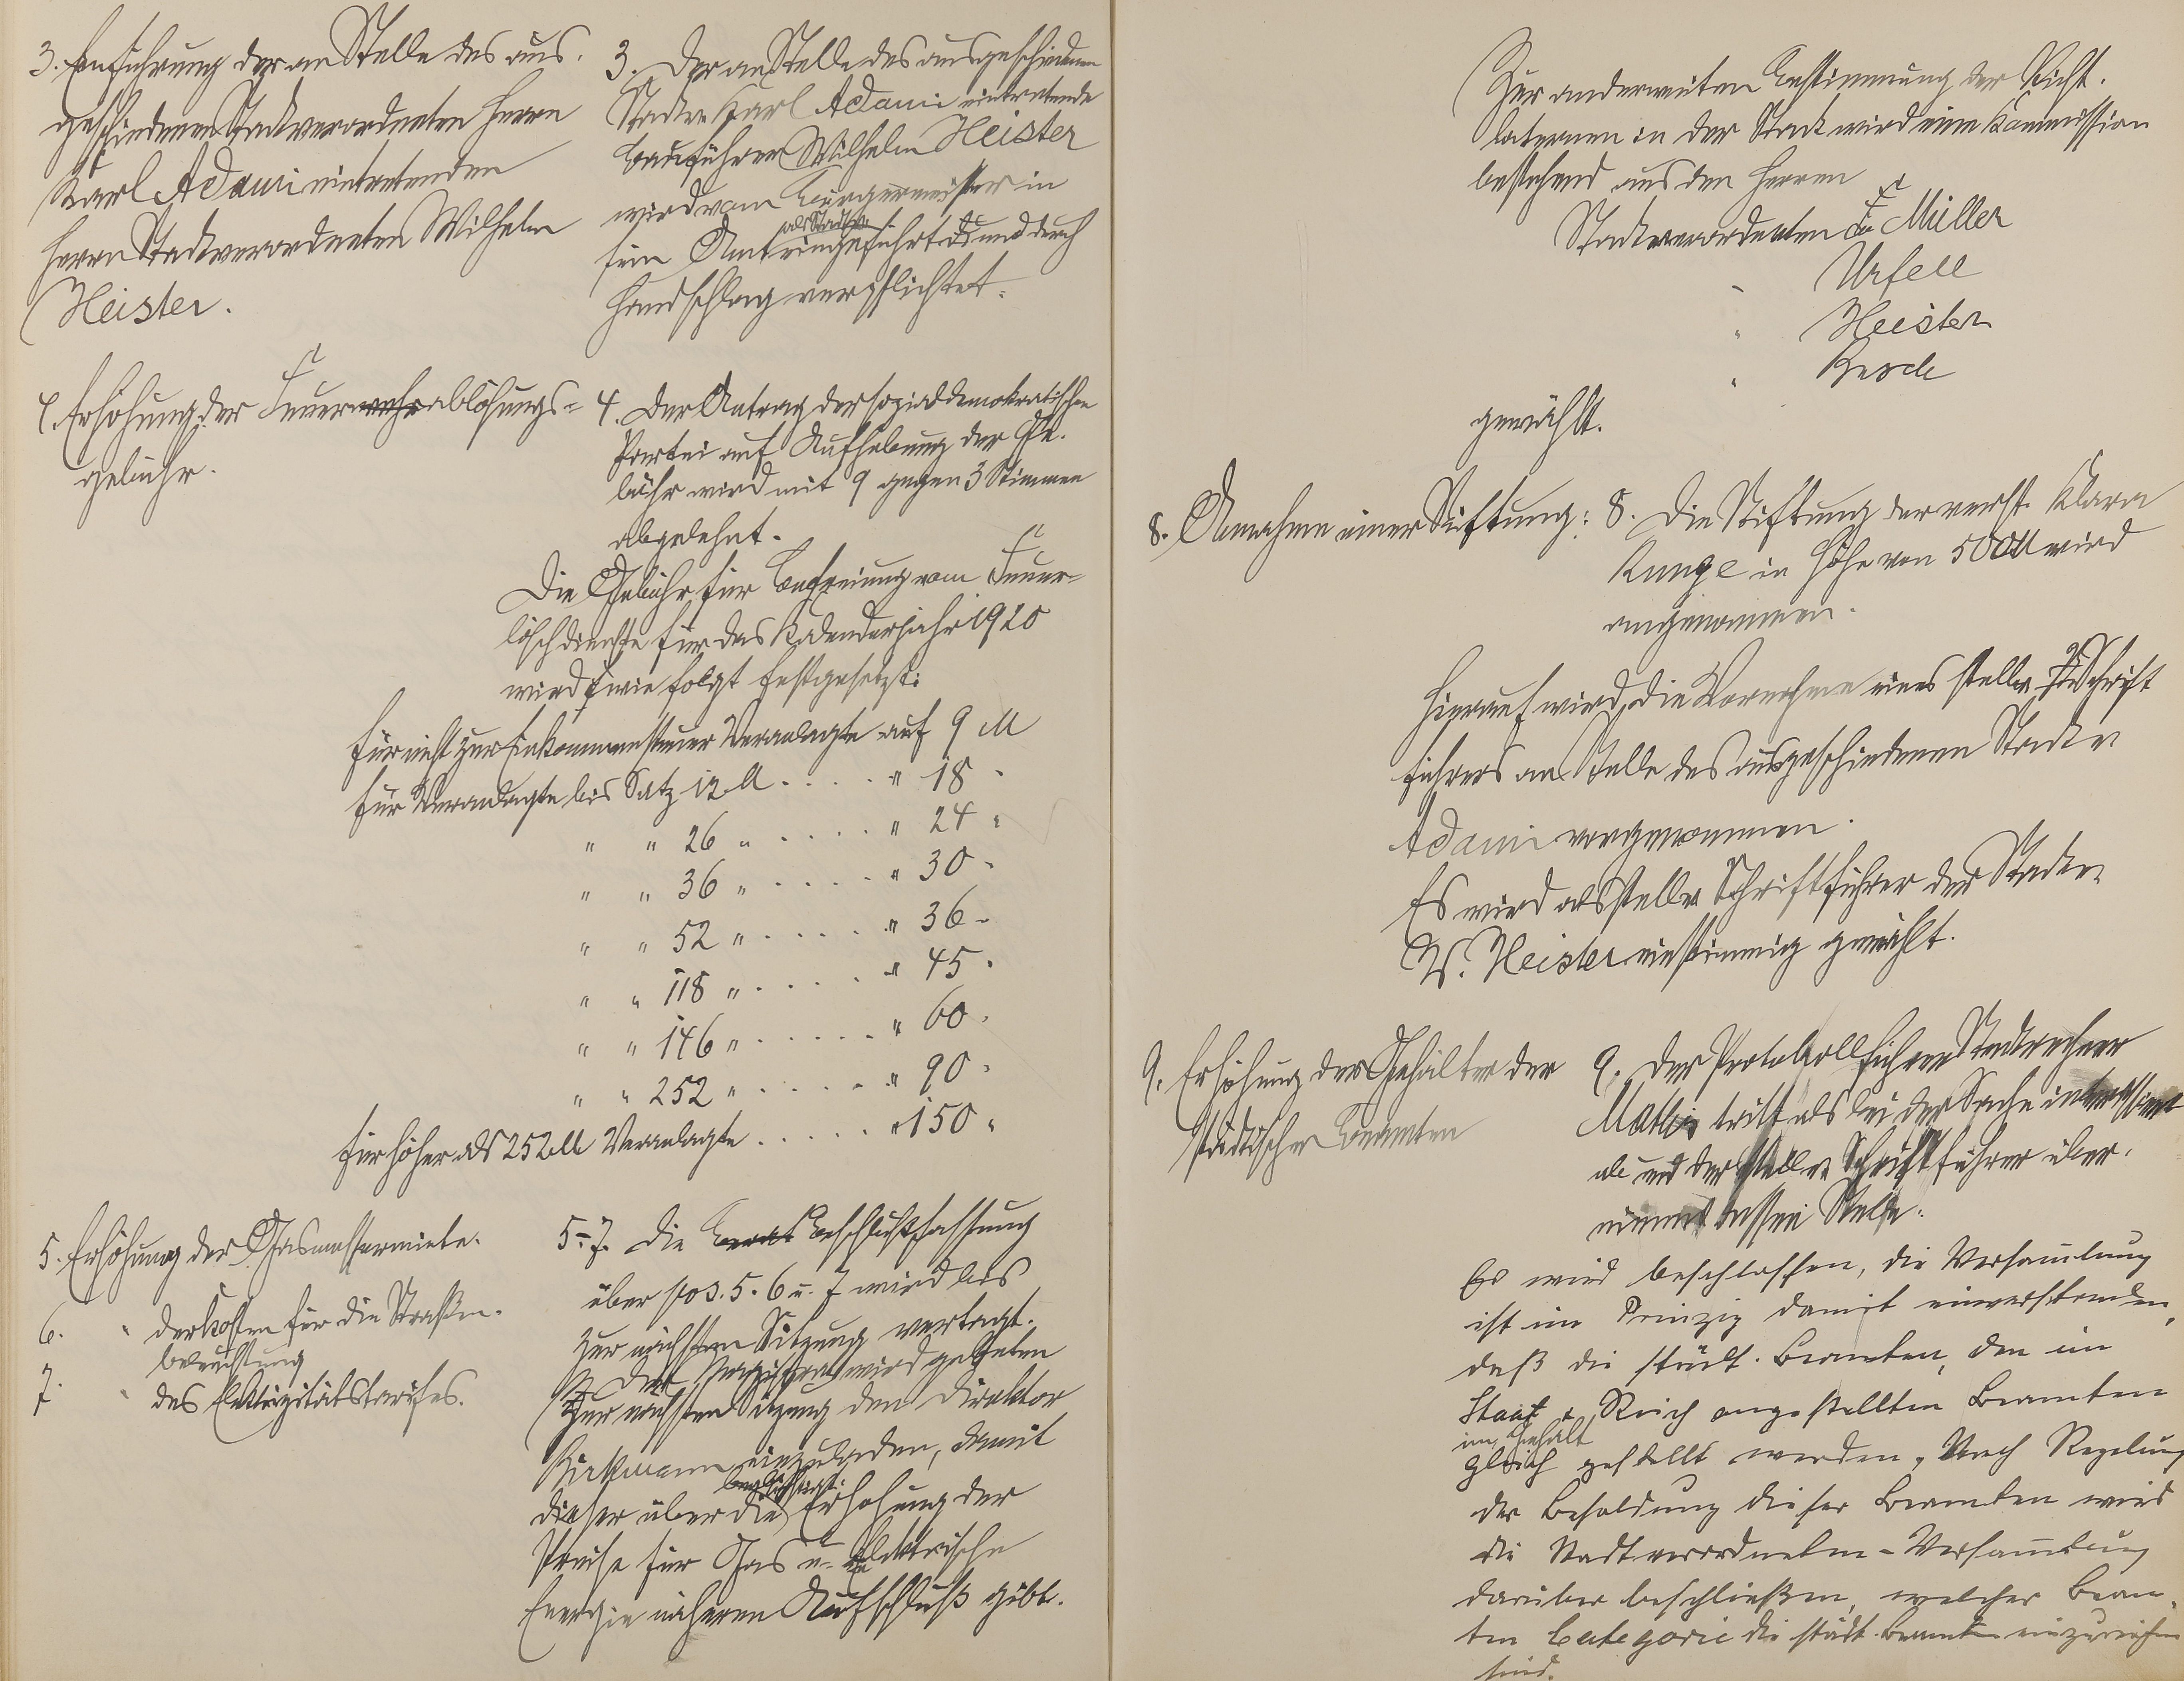 3. Einführung des an Stelle des aus-
geschiedenen Stadtverordneten Herrn
Karl Adami eintretenden
Herrn Stadtverordneten Wilhelm
Heister.
3. Der an Stelle des ausgeschiedenen
Stadtv. Karl Adami eintretende
Bauführer Wilhelm Heister
wird vom Bürgermeister in
als Stadtv.
sein Amt eingeführt und durch
Handschlag verpflichtet.
4. Erhöhung der Feuerwehrablösungs-
gebühr.
4. Der Antrag der sozialdemokratischen
Partei auf Aufhebung der Ge-
bühr wird mit 9 gegen 3 Stimmen
abgelehnt.
Die Gebühr für Befreiung vom Feuer-
löschdienste für das Kalenderjahr 1920
wird wie folgt festgesetzt:
Für nicht zur Einkommensteuer Veranlagte auf 9 M
Für Veranlagte bis Satz 12 M .... " 18 "
" " 26 " ..... " 24 "
" " 36 " ..... " 30 "
" " 52 " ..... " 36 "
" " 118 " ..... " 45 "
" " 146 " ..... " 60 "
" " 252 " ..... " 90 "
Für höher als 252 M Veranlagte ..... " 150 "
5. Erhöhung der Gasmessermiete.
6. " der Kosten für die Straßen-
beleuchtung
7. " des Elektrizitätstarifes.
5-7. Die Berat Beschlußfassung
über pos. 5. 6 u. 7 wird bis
zur nächsten Sitzung vertagt.
Der Magistrat wird gebeten
Zur nächsten Sitzung den Direktor
einzuladen, damit
beabsichtigte
dieser über die Erhöhung der
Preise für Gas u. Elektrische
Energie näheren Aufschluß gibt.
Zur anderweiten Bestimmung der Richt-
laternen in der Stadt wird eine Kommission
bestehend aus den Herren
Stadtverordneten Fr Müller
" Urfell
" Heister
" Kesch
gewählt.
8. Annahme einer Stiftung:
8. Die Stiftung der verst. Klara
Runge in Höhe von 500 M wird
angenommen.
Hierauf wird die Vornahme eines stellv. Schrift
führers an Stelle des ausgeschiedenen Stadtv
Adami vorgenommen.
Es wird als stellv Schriftführer der Stadtv.
W. Heister einstimmig gewählt.
9. Erhöhung der Gehälter der
städtischen Beamten
9. Der Protokollführer Stadtrechner
Mathis tritt als bei der Sache interessiert
ab und der stellv Schriftführer über-
nimmt dessen Stelle.
Es wird beschlossen, die Versamlung
ist im Prinzip damit einverstanden,
daß die städt. Beamten, den im
Staat & Reich angestellten Beamten
im Gehalt
gleich gestellt werden. Nach Regelung
der Besoldung dieser Beamten wird
die Stadtverordneten-Versamlung
darüber beschließen, welcher Beam-
ten Categorie die städt. Beamten einzureihen
sind.